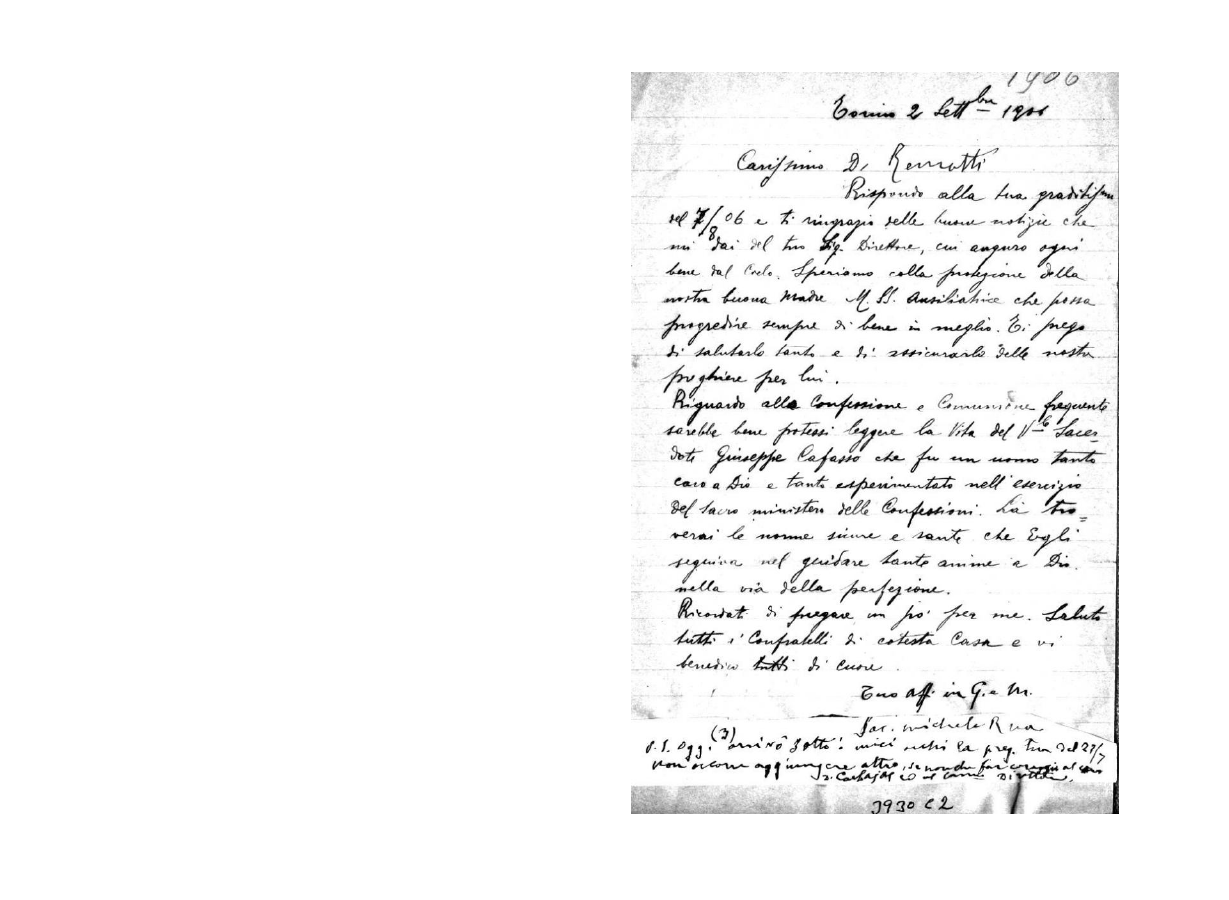 1906
Torino 2 Settbre 1906
Carissimo D. Remotti
Rispondo alla tua graditissima
del 7/8 06 e ti ringrazio delle buone notizie che
mi dai del tuo Sig. Direttore, cui auguro ogni
bene dal Cielo. Speriamo colla protezione della
nostra buona Madre M. SS. Ausiliatrice che possa
progredire sempre di bene in meglio. Ti prego
di salutarlo tanto e di assicurarlo delle nostre
preghiere per lui.
Riguardo alla Confessione e Comunione frequente
sarebbe bene potessi leggere la Vita del Vble Sacer=
dote Giuseppe Cafasso che fu un uomo tanto
caro a Dio e tanto esperimentato nell'esercizio
del sacro ministero delle Confessioni. Là tro=
verai le norme sicure e sante che Egli
seguiva nel guidare tante anime a Dio
nella via della perfezione.
Ricordati di pregare un po' per me. Saluto
tutti i Confratelli di cotesta Casa e vi
benedico tutti di cuore.
Tuo aff. in G. e M.
Sac. Michele Rua
P.S. Oggi (3) arrivò la preg. tua del 27/7
non occorre aggiungere altro, se non che far coraggio al caro
D. Carbajal ed al Direttore.
3930 C 2